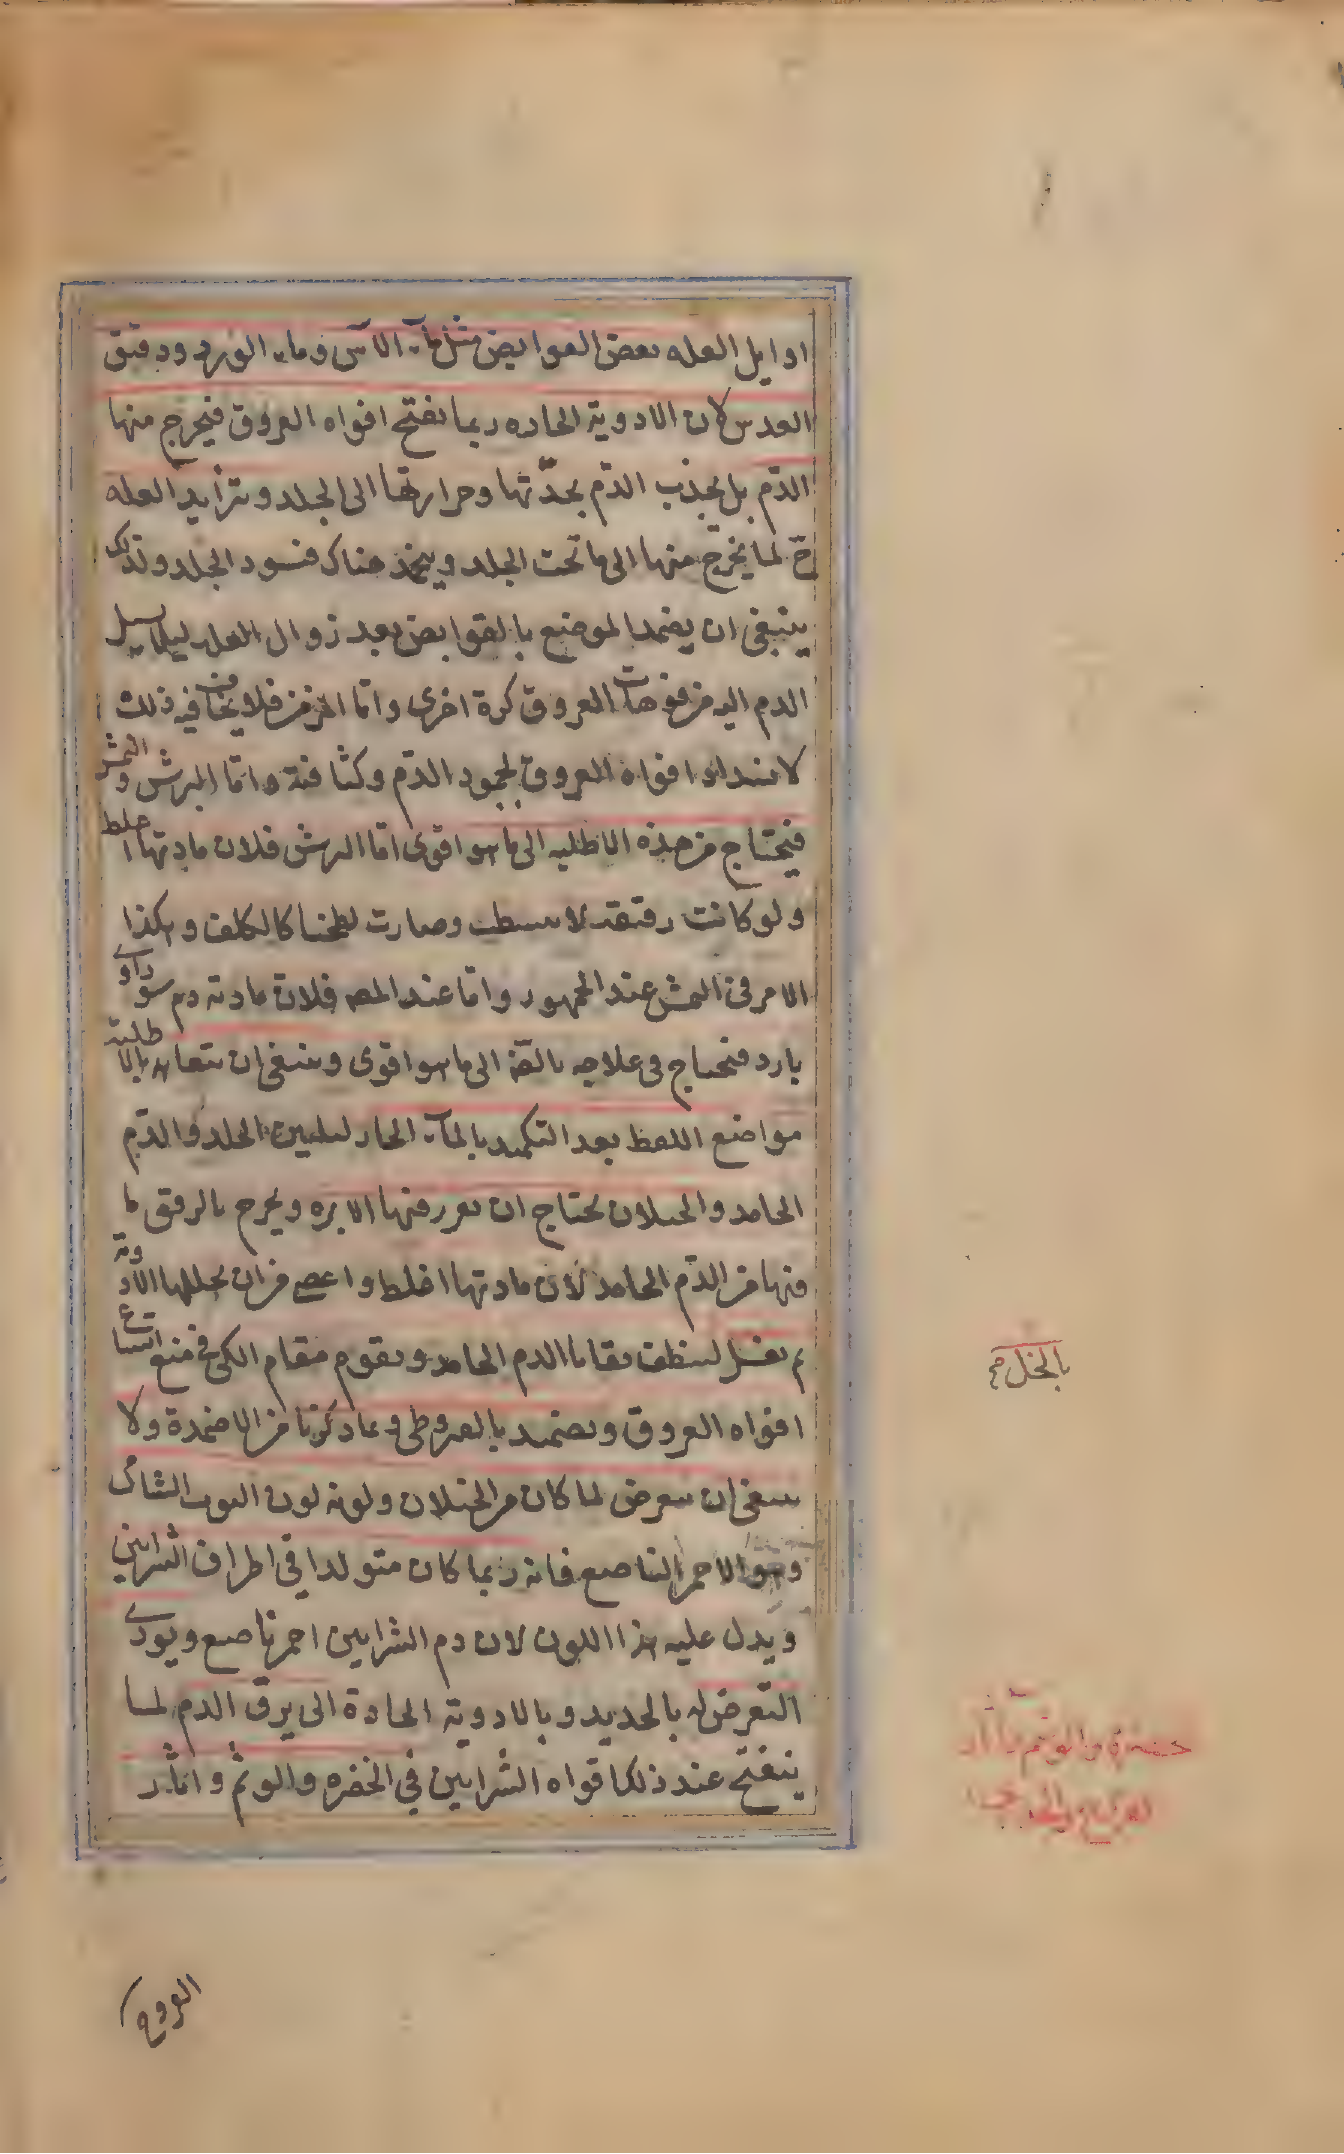 اوايل العله بعض القوابض مثل ماء الآس وماء الورد ودقيق
العدس لان الادوية الحاده ربما تفتح افواه العروق فيخرج منها
الدّم بل يجذب الدّم بحدّتها وحرارتها الى الجلد وتزايد العله
ح لما يخرج منها الى ما تحت الجلد وينجمد هناك فتسود الجلد ولذلك
ينبغى ان يضمد الموضع بالقوابض بعد زوال العله ليلا يسيل
الدم اليه من فوهات العروق كرة اخرى وامّا المزمن فلا يخاف فيه ذلك
لانسداد افواه العروق لجمود الدّم وكثافته وامّا البرش والنمش
فيحتاج من هذه الاطليه الى ما هو اقوى امّا البرش فلان مادتها اغلظ
ولو كانت رقيقه لانبسطت وصارت لطخا كالكلف وهكذا
الامر فى النمش عند الجمهور وامّا عند المص فلان مادته دم سوداوى
بارد فيحتاج فى علاجه الى ما هو اقوى وينبغى ان يتعاهد بالاطلية
مواضع اللعظ بعد التكميد بالماء الحار لتليين الجلد والدّم
الجامد والخيلان يحتاج ان تغرز فيها الابره ويخرج بالرفق ما
فيها من الدّم الجامد لان مادتها اغلظ واعصى من ان يحللها الادوية
ثم يغسل لينظف بقايا الدم الجامد ويقوم مقام الكى فى منع اتساع
افواه العروق ويضمد بالقيروطى وبما ذكرنا من الاضمدة ولا
ينبغى ان يتعرض لما كان من الخيلان ولونه لون التوت الشاى
وهو الاحمر الناصع فانه ربما كان متولدا فى اطراف الشرايين
ويدل عليه هذا اللون لان دم الشرايين احمر ناصع ويودى
التّعرض له بالحديد وبالادوية الحادة الى يرق الدم لما
ينفتح عند ذلك افواه الشرايين فى الخضره والوشم واثار
بالخل
القروح